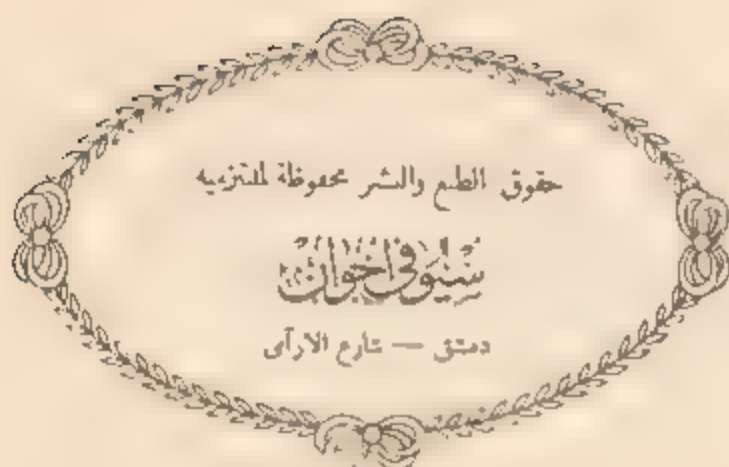 حقوق الطبع والنشر محفوظة لملتزميه
اخوان
دمشق — شارع الارآى